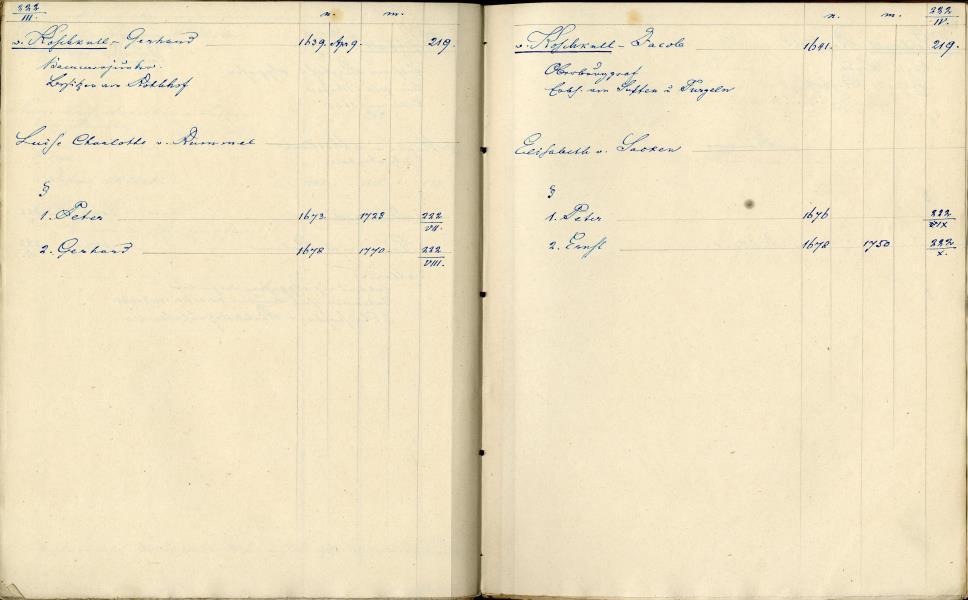 222
III.
n. m.
v. Koschkull - Gerhard 1639. Apr 9. 219.
Kammerjunker.
Besitzer von
Luise Charlotte v. Rummel
§
1. Peter 1673. 1723 222
VII.
2. Gerhard 1678 1770. 222
VIII.
n. m. 222
IV.
v. Koschkull - Jacob 1641. 219.
Oberburggraf
Erbh. von u
Elisabeth v. Sacken
§
1. Peter 1676 222
VIX
2. Ernst 1678 1750 222
X.